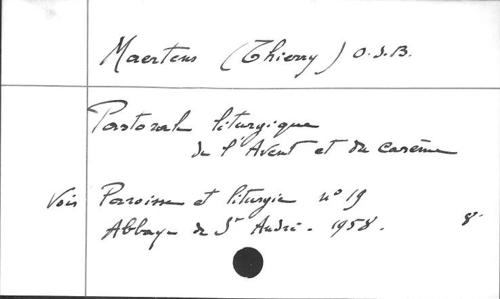 Maertens (Thierry) O.S.B.
Pastorale liturgique
de l'Avent et du carême
Voir Paroisse et liturgie n° 19
Abbaye de St André. 1958. 8°